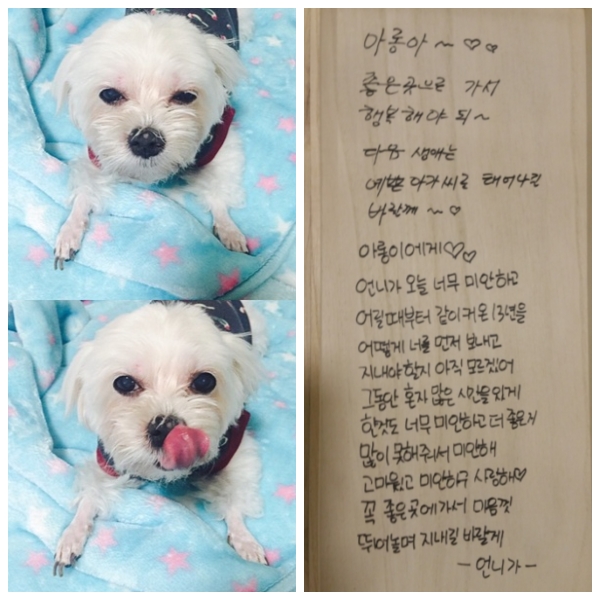 아롱아~♡♡
좋은곳으로 가서
행복해야 되~
다음 생애는
예쁜 아가씨로 태어나길
바랄께~♡
아롱이에게♡♡
언니가 오늘 너무 미안하고
어릴때부터 같이커온 13년을
어떻게 너를 먼저 보내고
지내야할지 아직 모르겠어
그동안 혼자 많은 시간을 있게
한것도 너무 미안하고 더 좋은거
많이 못해줘서 미안해
고마웠고 미안하구 사랑해♡
꼭 좋은곳에가서 마음껏
뛰어놀며 지내길 바랄게
-언니가-